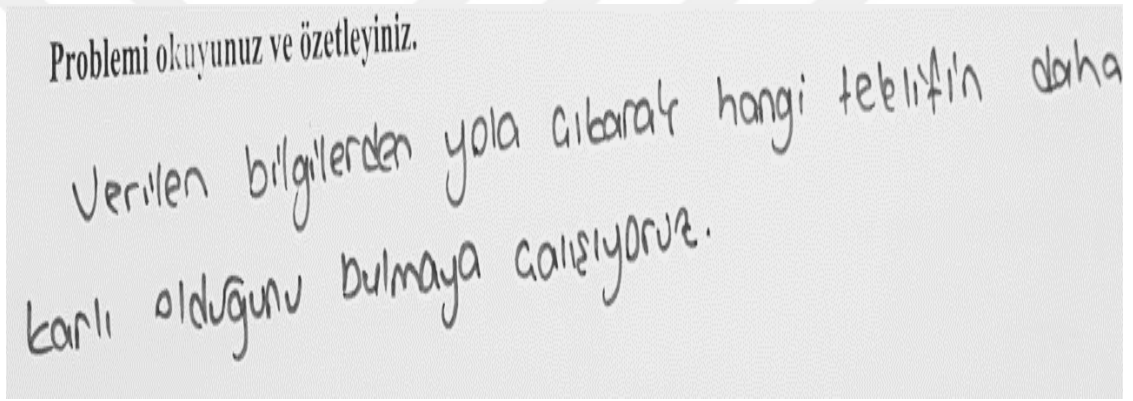 Problemi okuyunuz ve özetleyiniz.
Verilen bilgilerden yola çıkarak hangi teklifin daha
karlı olduğunu bulmaya çalışıyoruz.